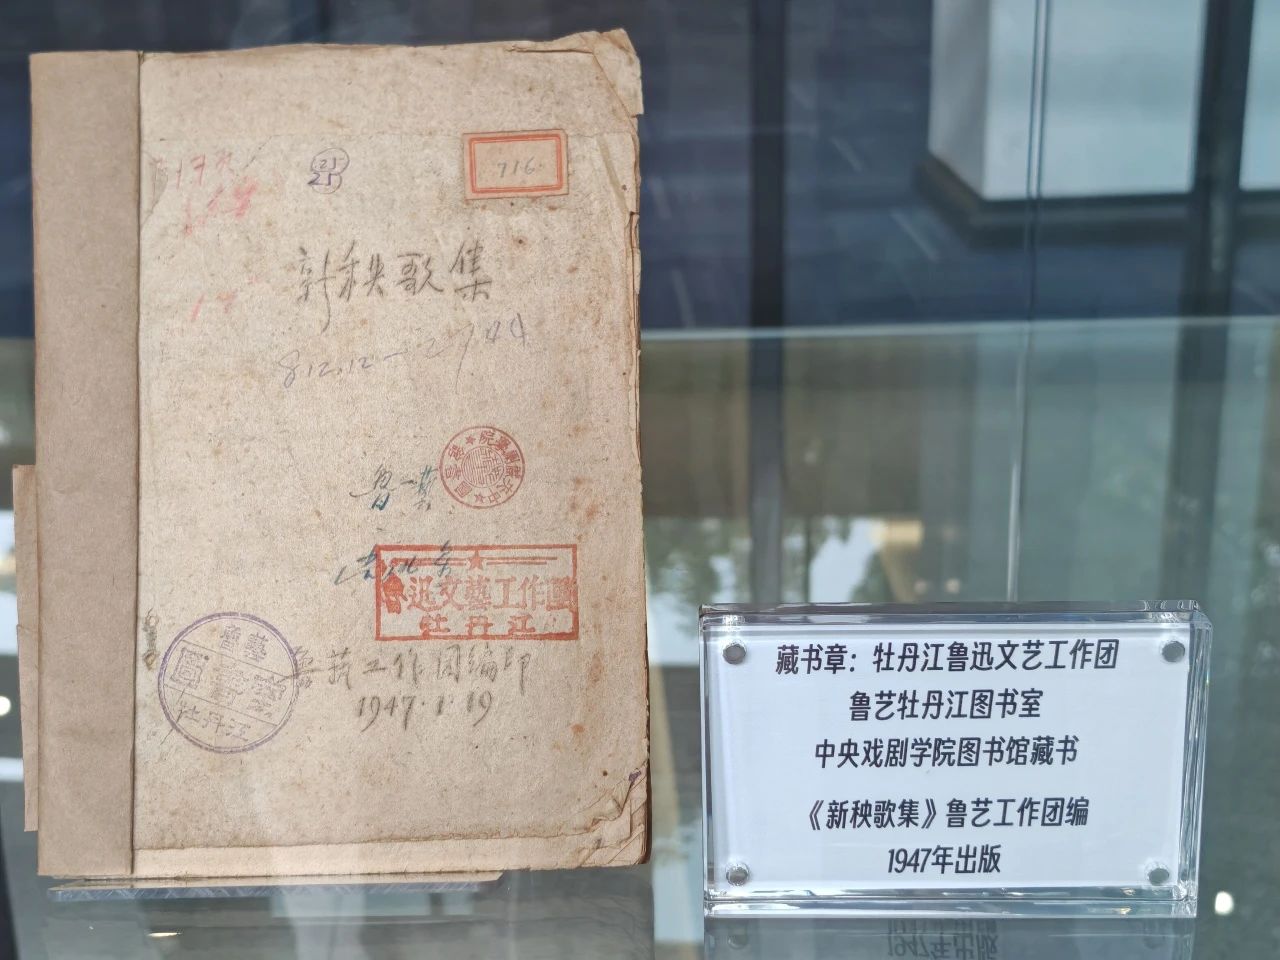 716.
21
新秧歌集
812.12—2744
鲁艺
中央戲劇學院圖書館
魯迅文藝工作團
牡丹江
魯藝
圖書室
牡丹江
鲁艺工作团编印
1947.1.19
藏书章：牡丹江鲁迅文艺工作团
鲁艺牡丹江图书室
中央戏剧学院图书馆藏书
《新秧歌集》鲁艺工作团编
1947年出版